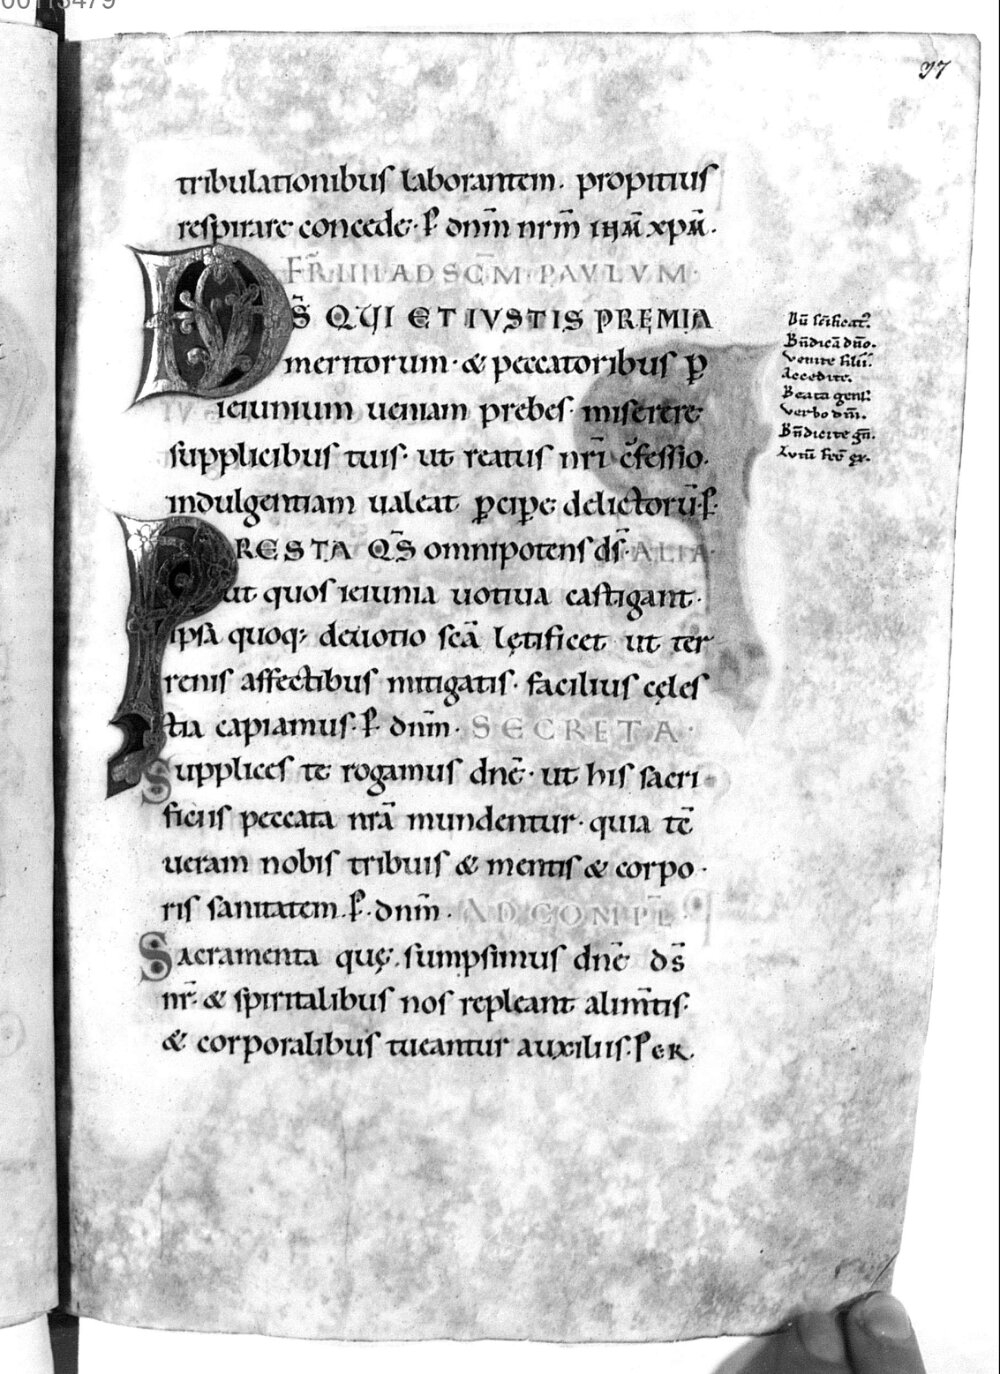 00113479
37
tribulationibus laborantem. propitius
respirare concede· ꝑ dnm̄ nrm̄ ihm̄ xpm̄.
FR̄ IIII AD SC̄M PAVLVM
DS̄ QUI ET IVSTIS PREMIA
meritorum· & peccatoribus ꝑ
ieiunium ueniam prebes· miserere
supplicibus tuis· ut reatus nr̄i c̄fessio
indulgentiam ualeat ꝑcipe delictorū· ꝑ·
PRESTA QS̄ omnipotens ds̄· ALIA·
ut quos ieiunia uotiua castigant·
ipsa quoq; deuotio scā lętificet ut ter
renis affectibus mitigatis· facilius cęles
tia capiamus· ꝑ· dnm̄· SECRETA·
Supplices te rogamus dnē· ut his sacri
ficiis peccata nrā mundentur· quia tc̄
ueram nobis tribuis & mentis & corpo
ris sanitatem. ꝑ· dnm̄· AD COMPL̄
Sacramenta quę sumpsimus dnē ds̄
nr̄ & spiritalibus nos repleant alim̄tis·
& corporalibus tueantur auxiliis· PER.
Dū sc̄ificat'
Bn̄dicā dn̄o.
Venite filii.
Accedite.
Beata gens
Verbo dn̄i.
Bn̄dicite gn̄.